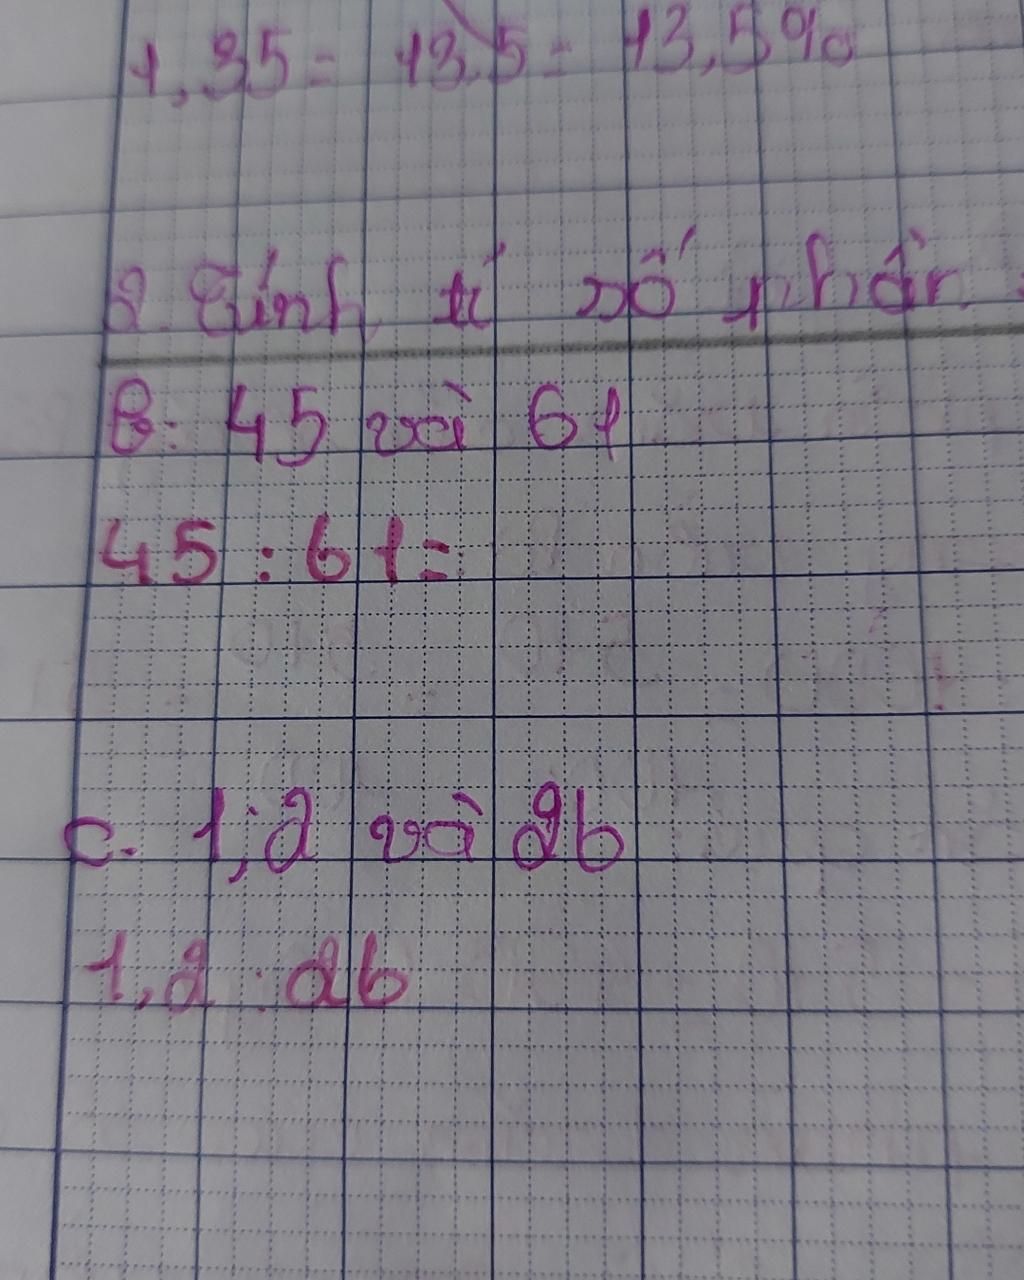 1,35 = 13,5 = 13,5%
2. Tính tỉ số phần
B: 45 và 61
45 : 61 =
c. 1,2 và 26
1,2 : 26